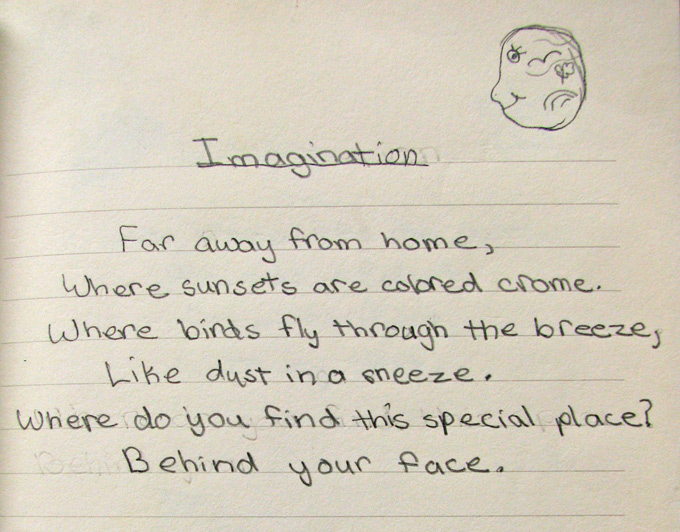 Imagination
Far away from home,
Where sunsets are colored crome.
Where birds fly through the breeze,
Like dust in a sneeze.
Where do you find this special place?
Behind your face.